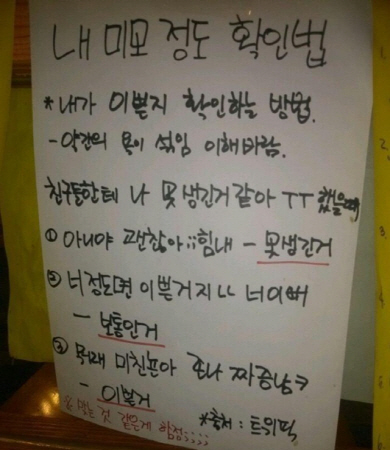 내 미모 정도 확인법
* 내가 이쁜지 확인하는 방법.
- 약간의 욕이 섞임 이해바람.
친구들한테 나 못생긴거같아 ㅜㅜ 했을때
① 아니야 괜찮아;; 힘내 - 못생긴거
② 너정도면 이쁜거지 ㄴㄴ 너이뻐
- 보통인거
③ 뭐래 미친년아 존나 짜증남ㅋ
- 이쁜거
* 출처 : 트위픽
※ 맞는 것 같은게 함정;;;;